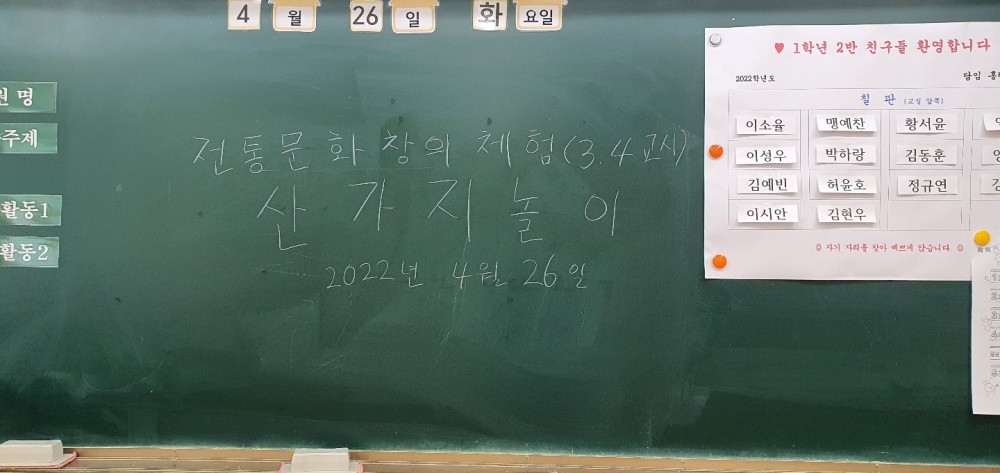 4 월 26 일 화 요일
원 명
주제
활동1
활동2
전통문화창의 체험(3.4교시)
산가지놀이
2022년 4월 26일
♥ 1학년 2반 친구들 환영합니다
2022학년도 담임
칠 판 (교실 앞쪽)
이소율 맹예찬 황서윤
이성우 박하랑 김동훈
김예빈 허윤호 정규연
이시안 김현우
자기 자리를 찾아 예쁘게 앉습니다.